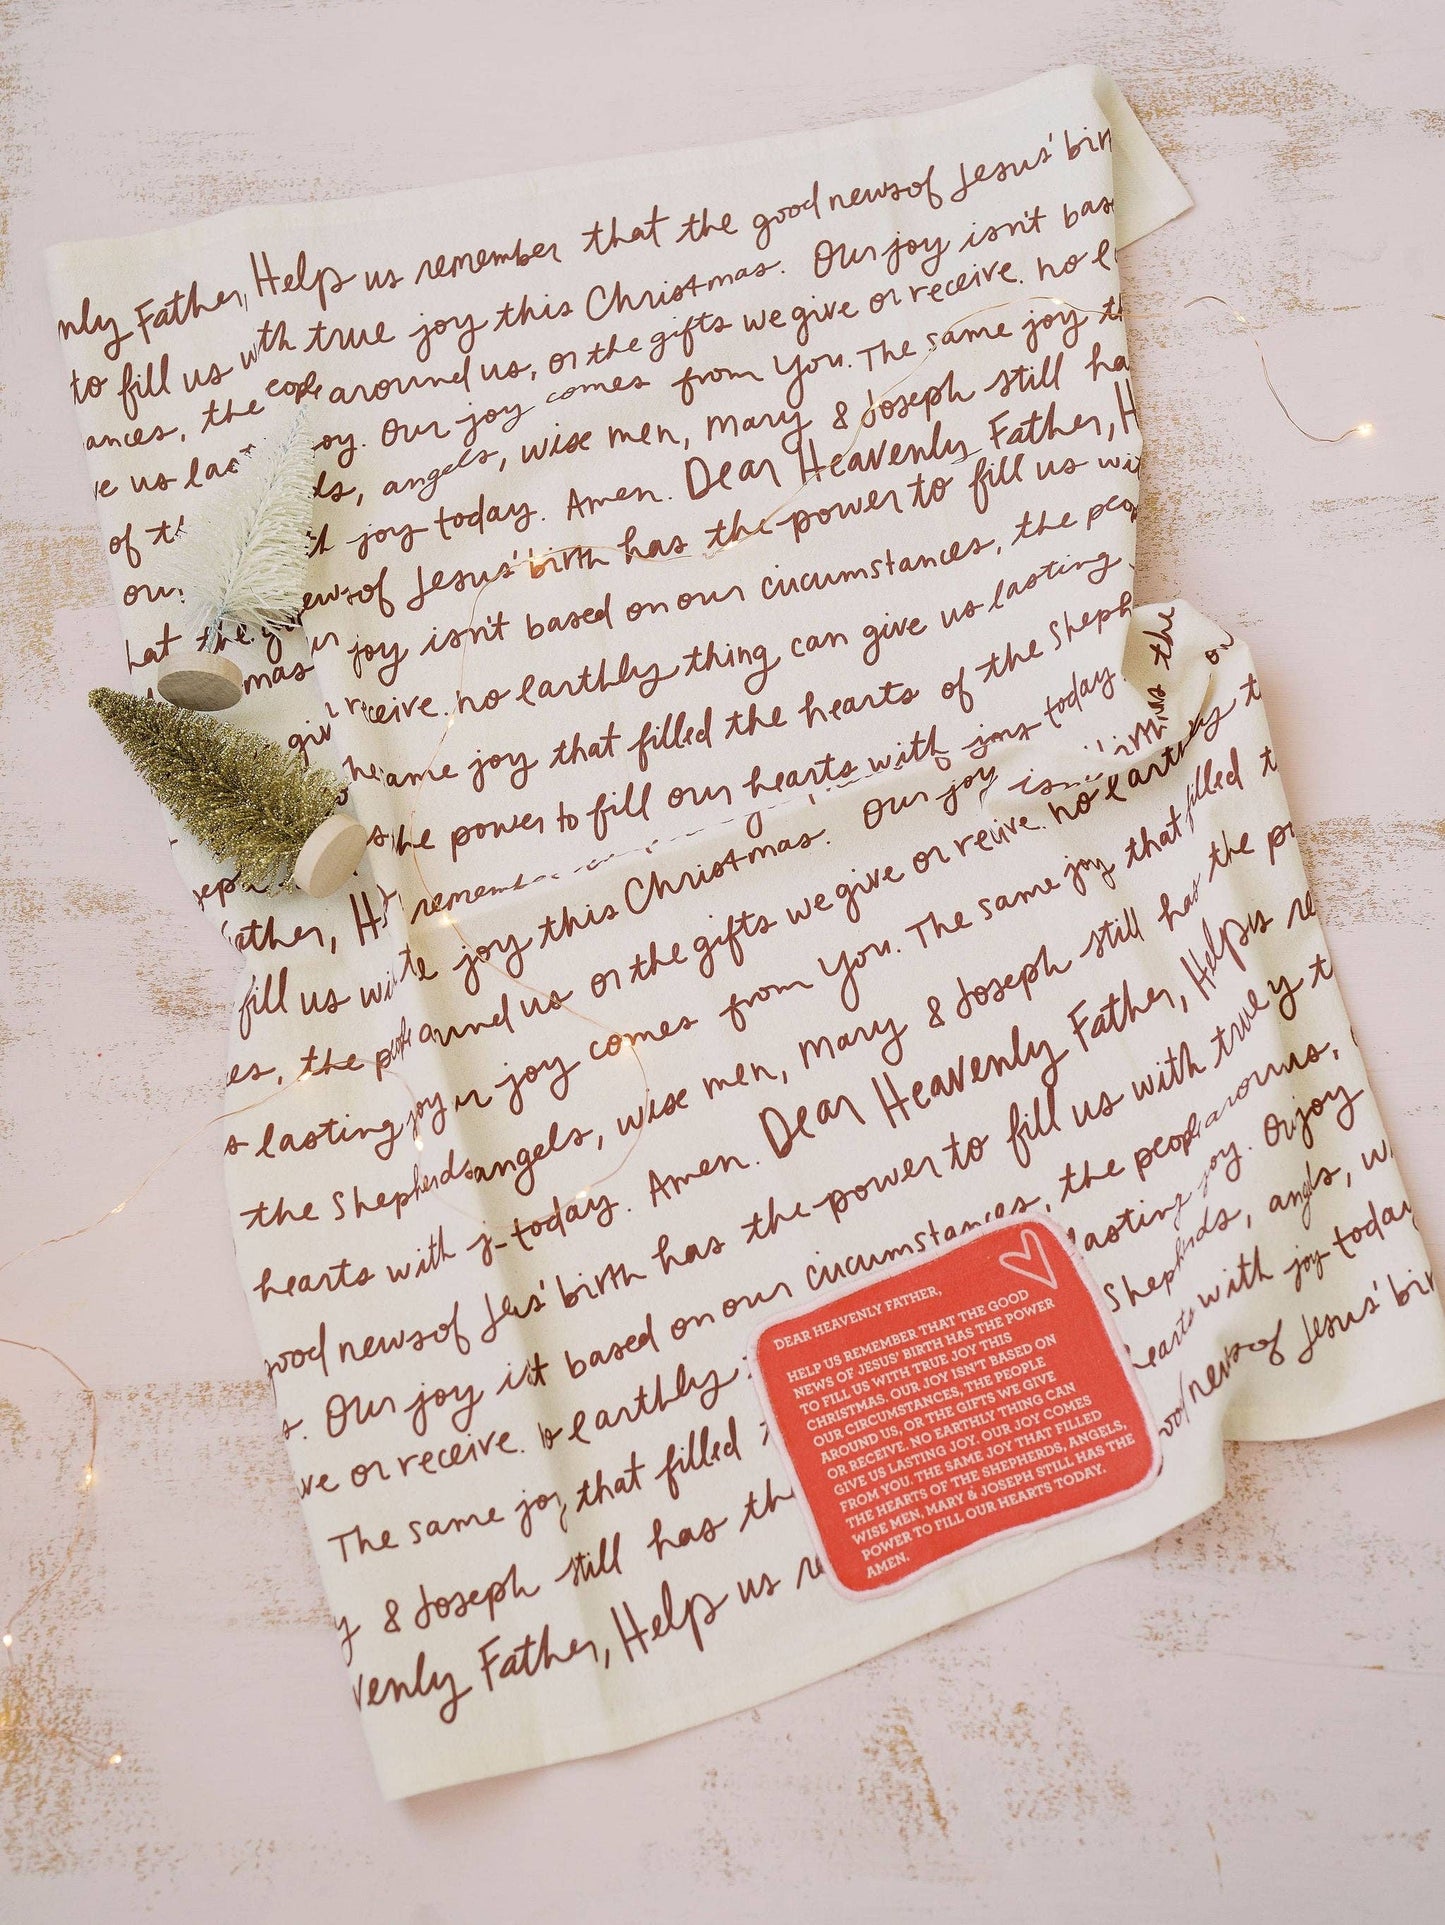 nly Father, Help us remember that the good news of Jesus' birt
to fill us with true joy this Christmas. Our joy isn't bas
ances, the people around us, or the gifts we give or receive. no e
e us las oy. Our joy comes from You. The same joy th
of th ds, angels, wise men, Mary & Joseph still ha
our joy today. Amen. Dear Heavenly Father, H
hat the ews of Jesus' birth has the power to fill us wi
mas joy isn't based on our circumstances, the peo
giv receive. no earthly thing can give us lasting
same joy that filled the hearts of the Sheph
the power to fill our hearts with joy today.
ather, H remem birth has the
fill us wi joy this Christmas. Our joy is
es, the people around us or the gifts we give or receive. no earthly t
s lasting joy r joy comes from You. The same joy that filled t
the Shepherds angels, wise men, Mary & Joseph still has the p
hearts with j today. Amen. Dear Heavenly Father, Help us re
good news of Jesus' birth has the power to fill us with true y t
s. Our joy is t based on our circumstances, the people around us,
ve or receive. no earthly lasting joy. Our joy
The same joy that filled Shepherds, angels, w
y & Joseph still has th hearts with joy today
venly Father, Help us r ood news of Jesus' bir
DEAR HEAVENLY FATHER,
HELP US REMEMBER THAT THE GOOD
NEWS OF JESUS' BIRTH HAS THE POWER
TO FILL US WITH TRUE JOY THIS
CHRISTMAS. OUR JOY ISN'T BASED ON
OUR CIRCUMSTANCES, THE PEOPLE
AROUND US, OR THE GIFTS WE GIVE
OR RECEIVE. NO EARTHLY THING CAN
GIVE US LASTING JOY. OUR JOY COMES
FROM YOU. THE SAME JOY THAT FILLED
THE HEARTS OF THE SHEPHERDS, ANGELS,
WISE MEN, MARY & JOSEPH STILL HAS THE
POWER TO FILL OUR HEARTS TODAY.
AMEN.